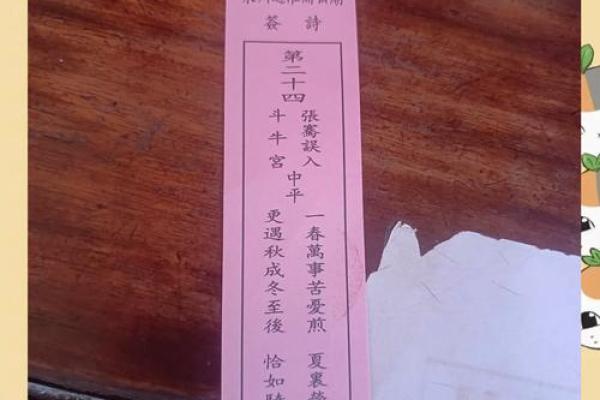 詩簽
第二十四
張騫誤入
斗牛宮
中平
一春萬事苦憂煎 夏裏
更遇秋成冬至後 恰如